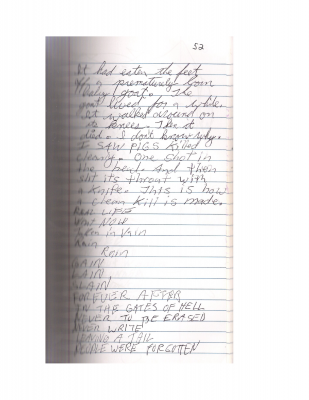 52
It had eaten the feet
off a prematurely born
baby goat. The
goat lived for a while.
It walked around on
its knees. Then it
died. I don't know why.
I SAW PIGS Killed
cleanly. One shot in
the head. And then
slit its throat with
a knife. This is how
a clean kill is made.
REAL LIFE
in Vain
Rain
Rain
SLAIN
FOREVER AFTER
IN THE GATES OF HELL
NEVER TO BE ERASED
WRITE
A JAIL
PEOPLE WERE FORGOTTEN